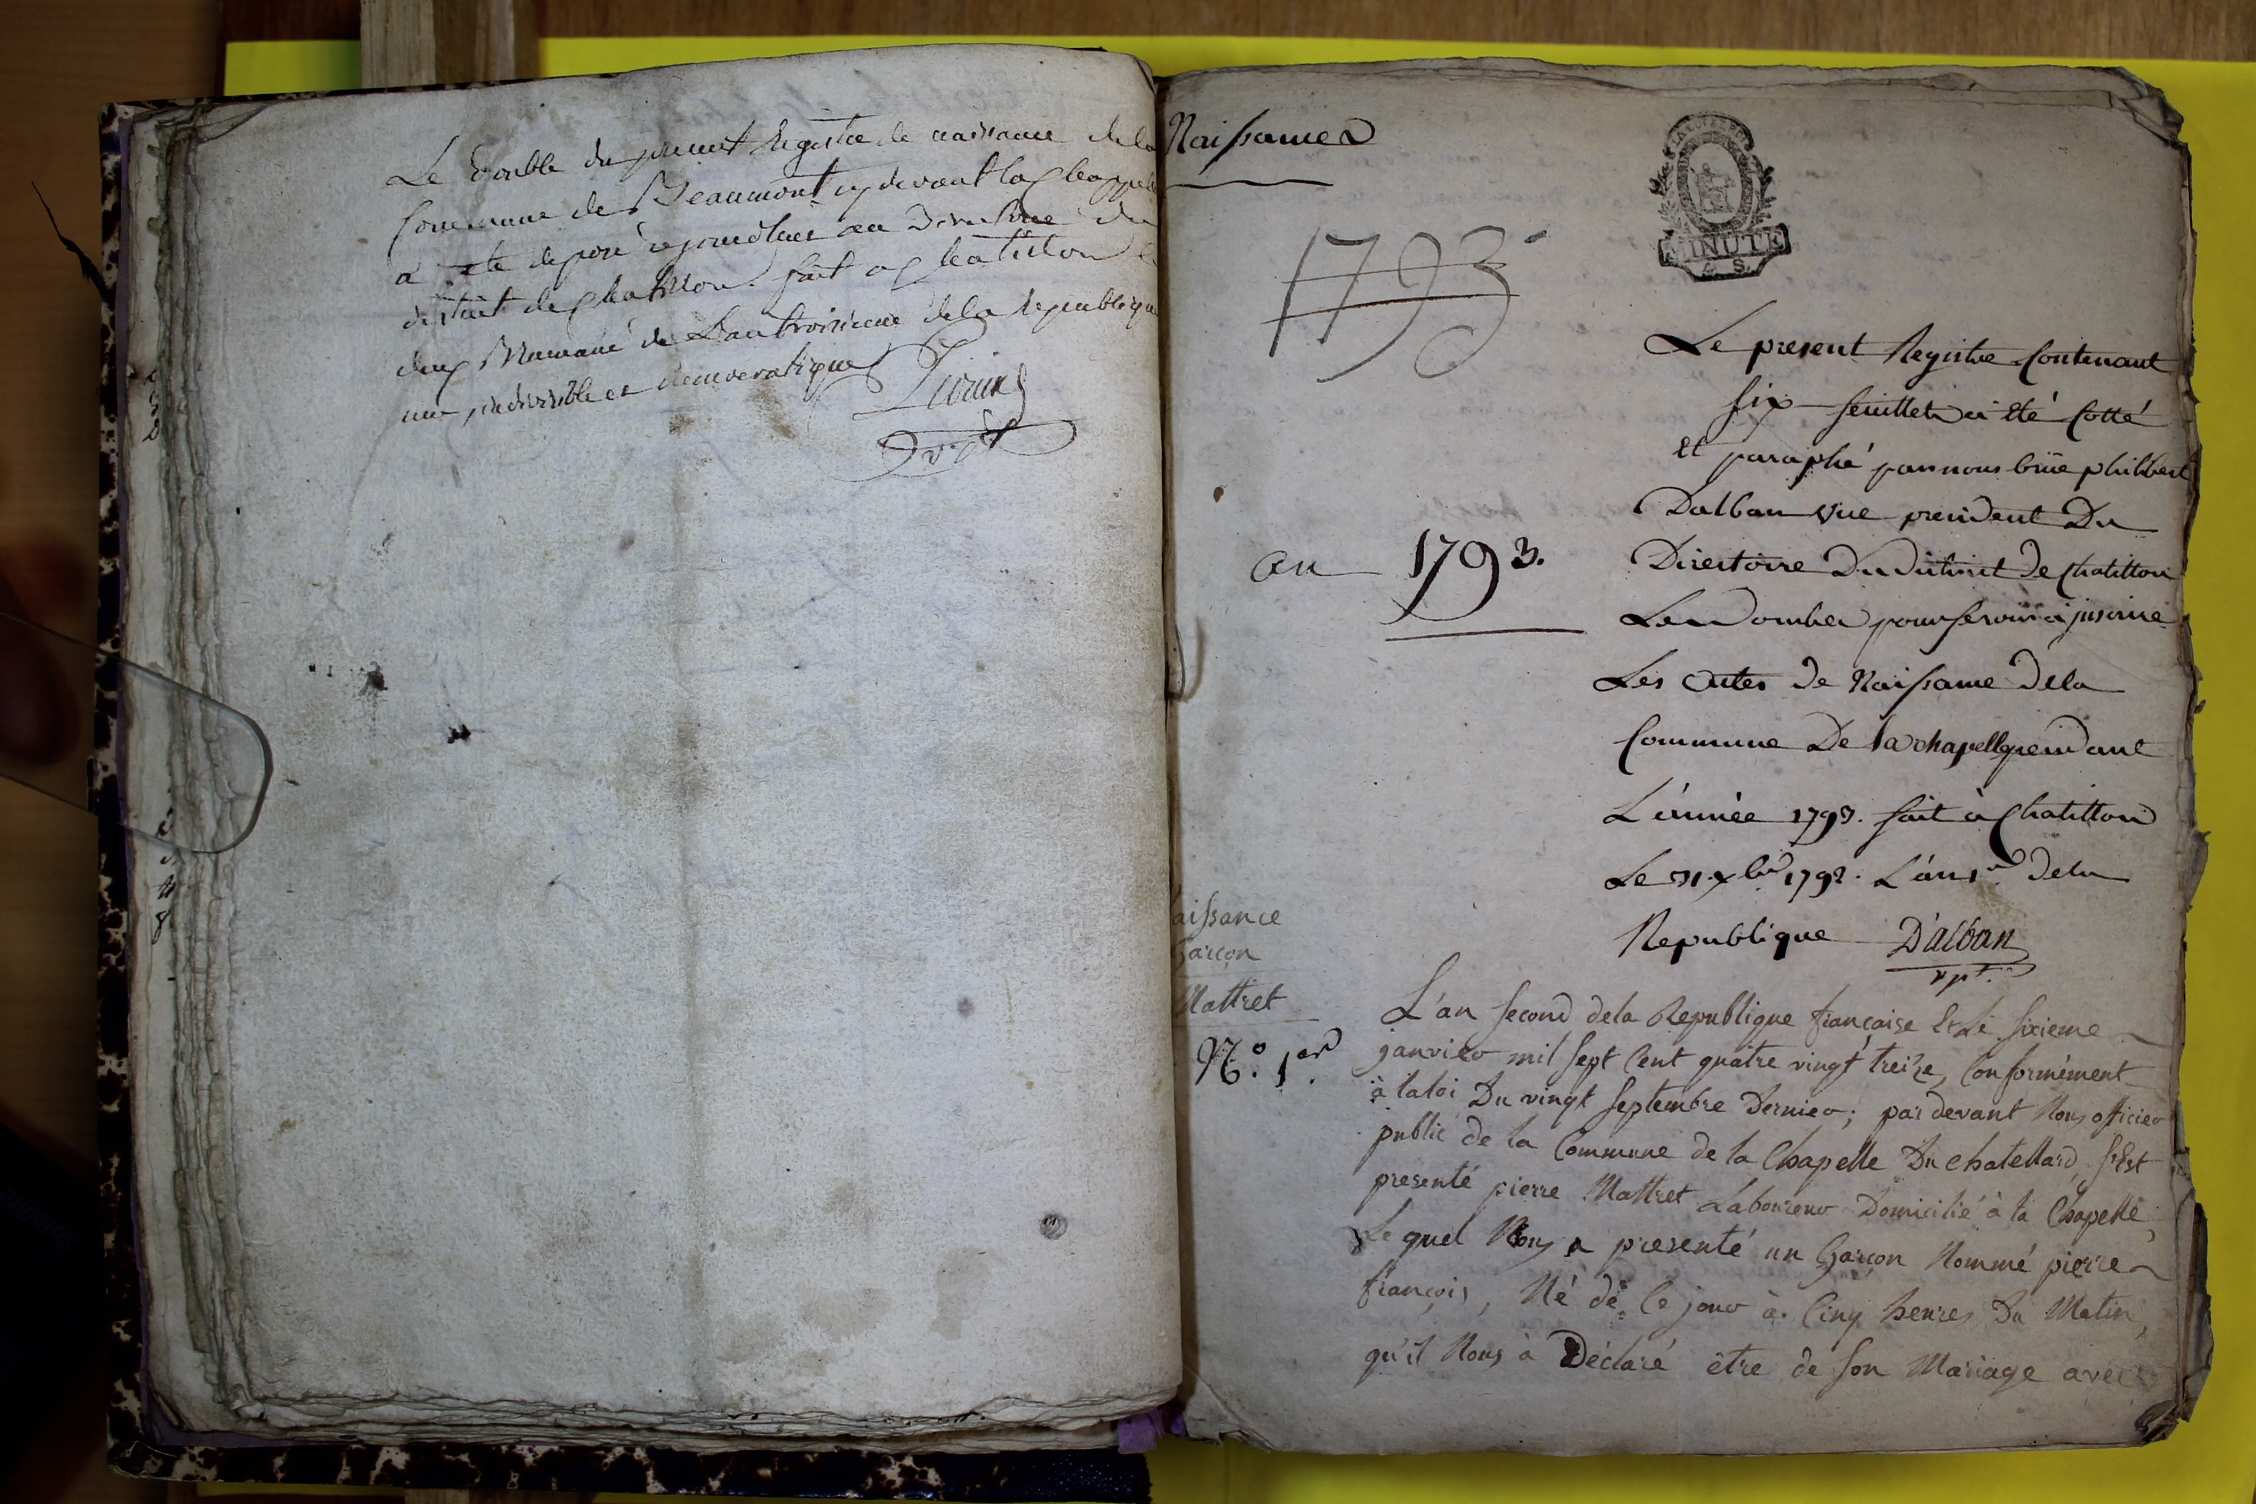 Le double du present Registre de naissance de la
Commune de Beaumont cy devant la Chappelle
a été deposé cejourdhui au du
district de Chatillon. fait a Chatillon le
deux de L'an troisieme de la republique
une, indivisible et democratique
Naissances
MINUTE
1793
Le present Registre Contenant
six feuillets a été Cotté
et paraphé par nous philibert
Dalban vice president Du
Directoire Du district De Chatillon
Les Dombes pour servir à inscrire
an 1793.
Les actes de Naissance de la
Commune De la chapelle pendant
L'année 1793. fait à Chatillon
Le 31 xbre 1792. L'an 1er de la
Republique D'alban
vpt
aissance
Garçon
Mattret
N.º 1.er
L'an second de la Republique française et Le sixieme
janvier mil sept Cent quatre vingt treize, Conformément
à la loi Du vingt septembre Dernier; par devant Nous officier
public de la Commune de la Chapelle Du chatellard, s'est
presenté pierre Mattret Laboureur Domicilié à la Chapelle,
Le quel Nous a presenté un Garçon Nommé pierre
françois, Né de Ce jour à Cinq heures Du Matin,
qu'il Nous à Déclaré être de son Mariage avec